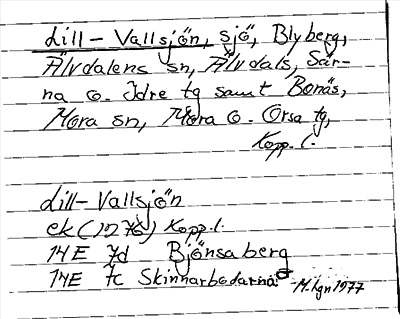 Lill-Vallsjön, sjö, Blyberg,
Älvdalens sn, Älvdals, Sär-
na o. Idre tg samt Bonäs,
Mora sn, Mora o. Orsa tg,
Kopp. l.
Lill-Vallsjön
ek (1976) Kopp. l.
14E 7d Björnsaberg
14E 7c Skinnarbodarna
M.lgn 1977